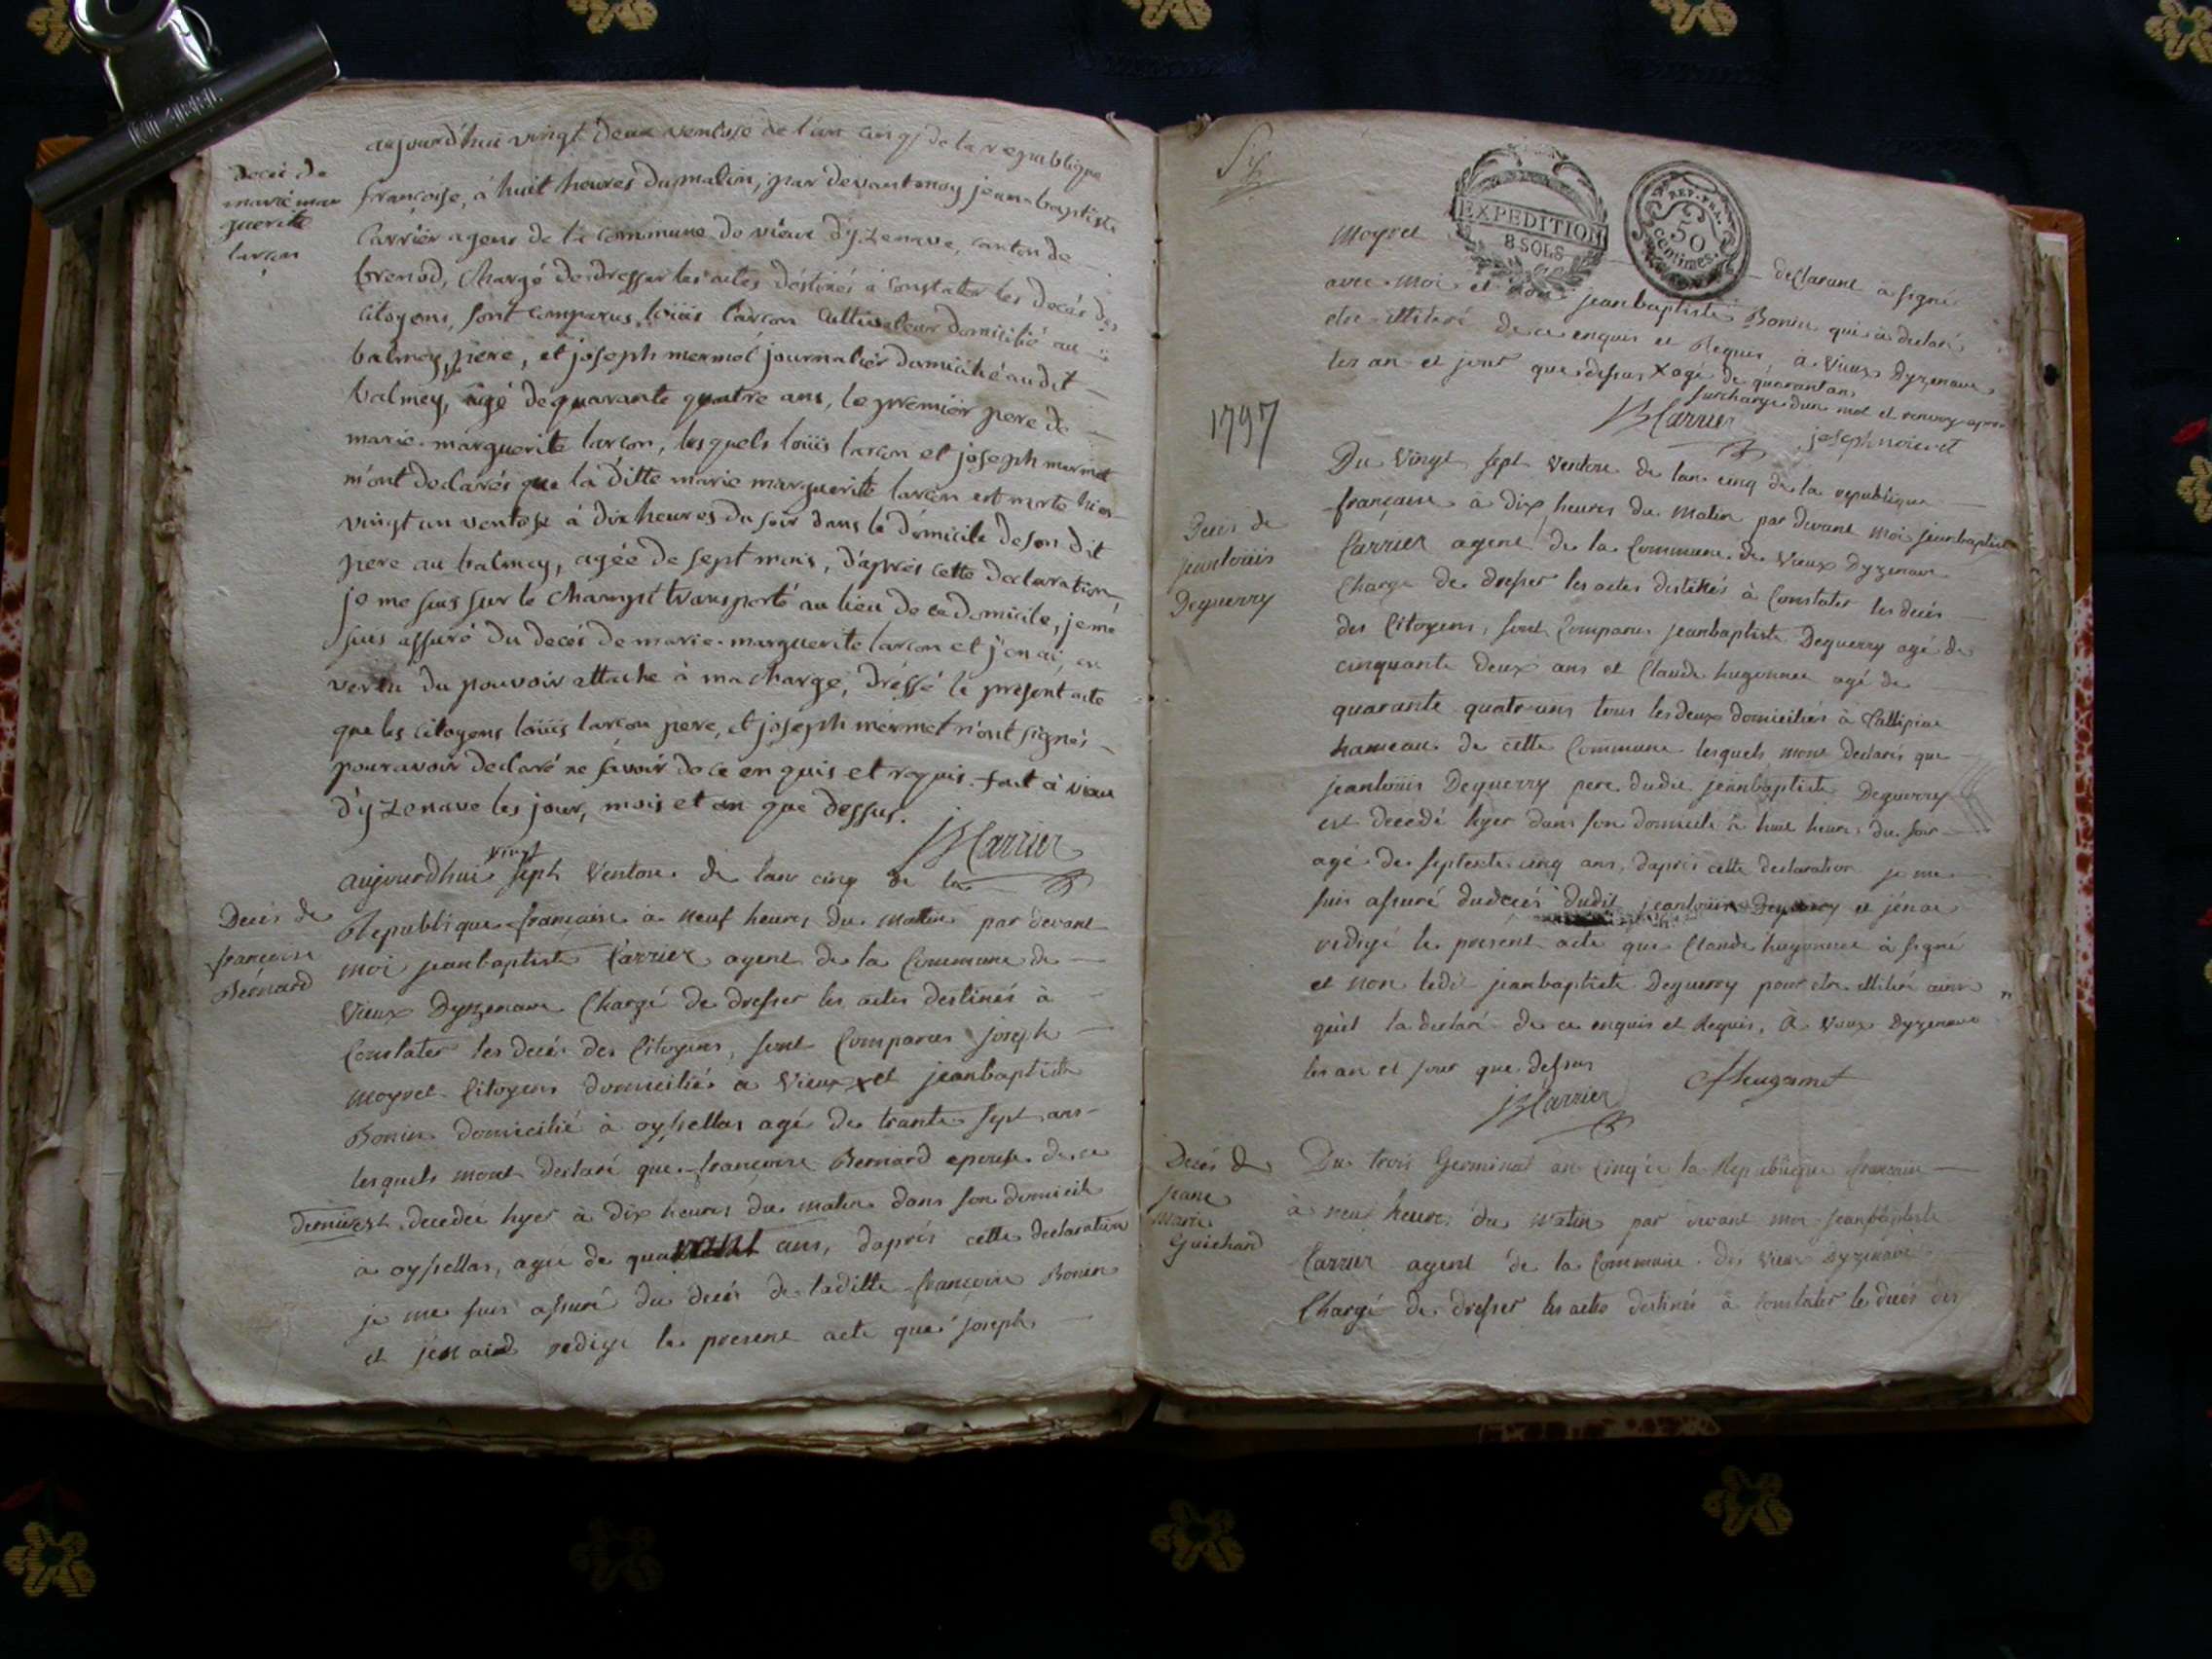 decés de
marie mar
guerite
larçon
aujourd'hui vingt deux ventose de l'an cinq de la republique
françoise, à huit heures du matin, par devant moy jean-baptiste
Carrier agent de la commune de vieux d'yzenave, canton de
brenod, chargé de dresser les actes déstinés à constater les decés des
citoyens, sont comparus loüis larçon cultivateur domicilié au
balmey, pere, et joseph mermet journalier domicilié au dit
balmey, agé de quarante quatre ans, le premier pere de
marie-marguerite larçon, lesquels loüis larçon et joseph mermet
m'ont declarés que la ditte marie marguerite larçon est morte hier
vingt un ventose à dix heures du soir dans le domicile de son dit
pere au balmey, agée de sept mois, d'aprés cette declaration,
je me suis sur le champt transporté au lieu de ce domicile, je me
suis assuré du decés de marie-marguerite larçon et j'en ai, en
vertu du pouvoir attaché à ma charge, dressé le present acte
que les citoyens loüis larçon pere, et joseph mermet n'ont signés
pour avoir declaré ne savoir de ce enquis et requis. fait à vieux
d'yzenave les jour, mois et an que dessus.
JB Carrier
Decés de
francoise
Bernard
vingt
aujourdhui sept Ventose de lan cinq de la
Republique francaise à neuf heures du matin par devant
moi jeanbaptiste Carrier agent de la Commune de
Vieux Dyzenave Chargé de dresser les actes destinés à
Constater les decés des Citoyens, sont Comparus joseph
moyret Citoyens domiciliés à Vieux x et jeanbaptiste
Bonin domicilié à oysellas agé de trante sept ans
lesquels mont declaré que francoise Bernard epouse de ce
dernier est decedée hyer à dix heures du matin dans son domicile
à oysellas, agee de quarante ans, daprés cette declaration
je me suis assuré du decés de laditte francoise Bonin
et j'en aid redigé le present acte que joseph
EXPEDITION
8 SOLS
REP. FRA.
50
centimes.
moyret declarant à signé
avec moi et non jeanbaptiste Bonin qui à declaré
etre illiteré de ce enquis et Requis à Vieux Dyzenave
les an et jour que dessus x agé de quarant ans
surcharge dun mot et renvoy aprou
JB Carrier
joseph moieret
1797
Decés de
jeanlouis
Deguerry
Du Vingt sept Ventose de lan cinq de la republique
francaise à dix heures du matin par devant moi jeanbaptiste
Carrier agent de la Commune de Vieux Dyzenave
Chargé de dresser les actes destinés à Constater les decés
des Citoyens, sont Comparus jeanbaptiste Deguerry agé de
cinquante deux ans et Claude hugonnet agé de
quarante quatre ans tous les deux domiciliés à
hameau de cette Commune lesquels mont declarés que
jeanlouis Deguerry pere dudit jeanbaptiste Deguerry
est decedé hyer dans son domicile à huit heures du soir
agé de septente cinq ans, daprés cette declaration je me
suis assuré dudecés dudit jeanlouis Deguerry et j'en ai
redigé le present acte que Claude hugonnet à signé
et non ledit jeanbaptiste Deguerry pour etre illiteré ainsi
quil la declaré de ce enquis et Requis, à Vieux Dyzenave
les an et jour que dessus
JB Carrier
C hugonnet
Decés de
jeane
marie
Guichard
Du trois Germinal an Cinq de la Republique francaise
à neuf heures du matin par devant moi jeanbaptiste
Carrier agent de la Commune de Vieux Dyzenave
Chargé de dresser les actes destinés à constater le decés des